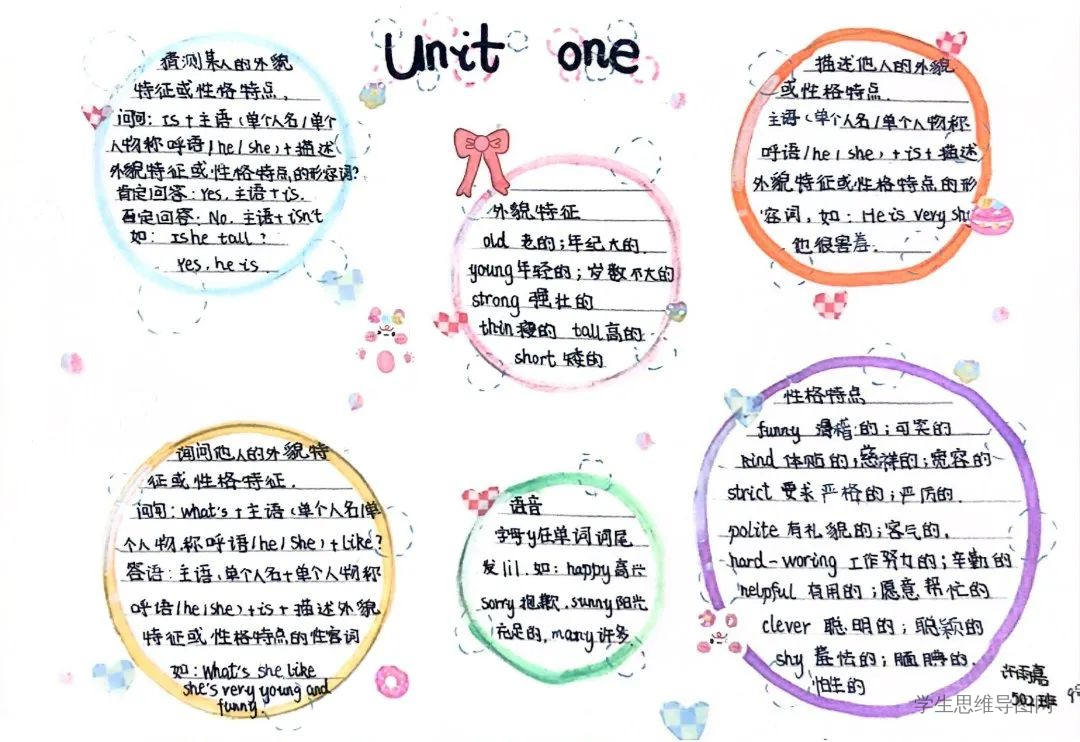 Unit one
猜测某人的外貌
特征或性格特点.
问句: Is+主语(单个人名/单个
人物称呼语/he/she)+描述
外貌特征或性格特点的形容词?
肯定回答: Yes, 主语+is.
否定回答: No, 主语+isn't
如: Is he tall?
Yes, he is
外貌特征
old 老的;年纪大的
young 年轻的;岁数不大的
strong 强壮的
thin 瘦的 tall 高的
short 矮的
描述他人的外貌
或性格特点.
主语(单个人名/单个人物称
呼语/he/she)+is+描述
外貌特征或性格特点的形
容词, 如: He is very shy
他很害羞.
询问他人的外貌特
征或性格特征.
问句: what's+主语(单个人名/单
个人物称呼语/he/she)+like?
答语: 主语(单个人名+单个人物称
呼语/he/she)+is+描述外貌
特征或性格特点的性容词
如: what's she like
she's very young and
funny.
语音
字母y在单词词尾
发/i/. 如: happy 高兴
sorry 抱歉. sunny 阳光
充足的, many 许多.
性格特点
funny 滑稽的;可笑的
kind 体贴的;慈祥的;宽容的
strict 要求严格的;严厉的.
polite 有礼貌的;客气的.
hard-woring 工作努力的;辛勤的
helpful 有用的;愿意帮忙的
clever 聪明的;聪颖的
shy 羞怯的;腼腆的.
怕生的
许雨嘉
502班 9号
学生思维导图网